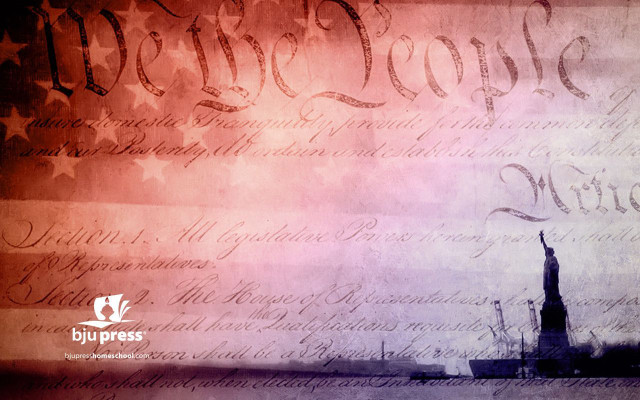 We the People
insure domestic Tranquility, provide for the common de
and our Posterity, do ordain and establish this Constitution
Artic
Section. 1. All legislative Powers herein granted shall
of Representatives.
Section. 2. The House of Representatives shall be compo
in each shall have the Qualifications requisite
Person shall be a Representative who
and who shall not, when elected, be an Inhabitant of that State in
bju press
bjupresshomeschool.com